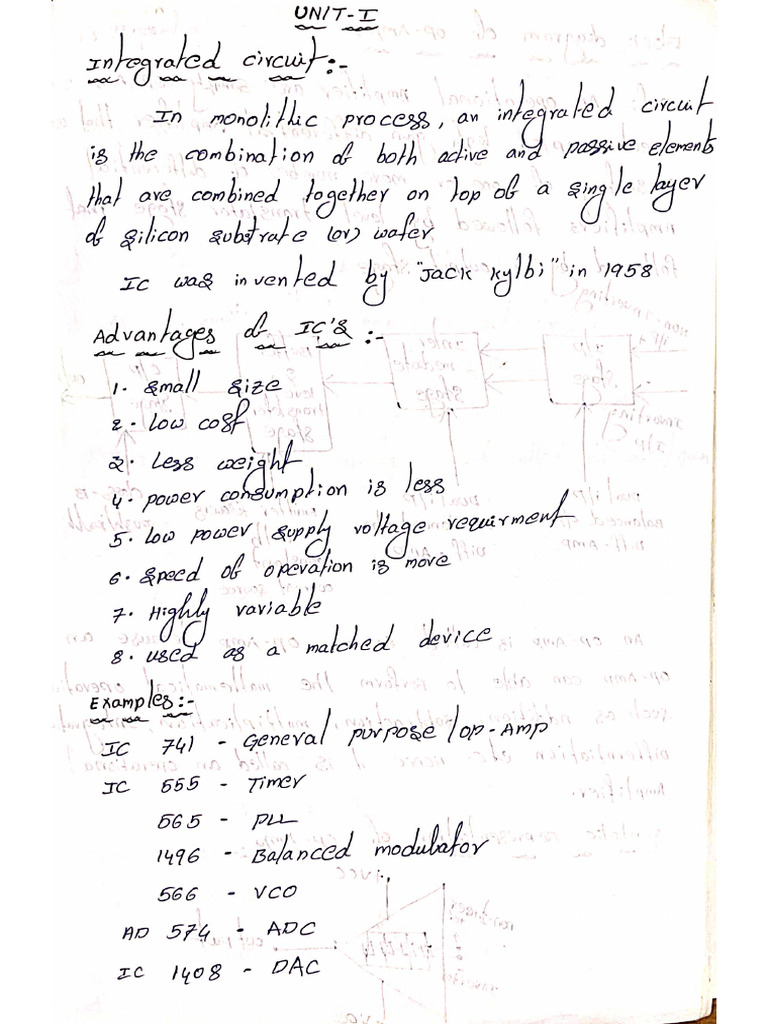 UNIT-I
Integrated circuit:-
In monolithic process, an integrated circuit
is the combination of both active and passive elements
that are combined together on top of a single layer
of silicon substrate (or) wafer
IC was invented by "Jack Kylbi" in 1958
Advantages of IC's :-
1. small size
2. Low cost
3. Less weight
4. power consumption is less
5. Low power supply voltage requirment
6. speed of operation is move
7. Highly variable
8. used as a matched device
Examples:-
IC 741 - General purpose / op-Amp
IC 555 - Timer
565 - PLL
1496 - Balanced modulator
566 - VCO
AD 574 - ADC
IC 1408 - DAC